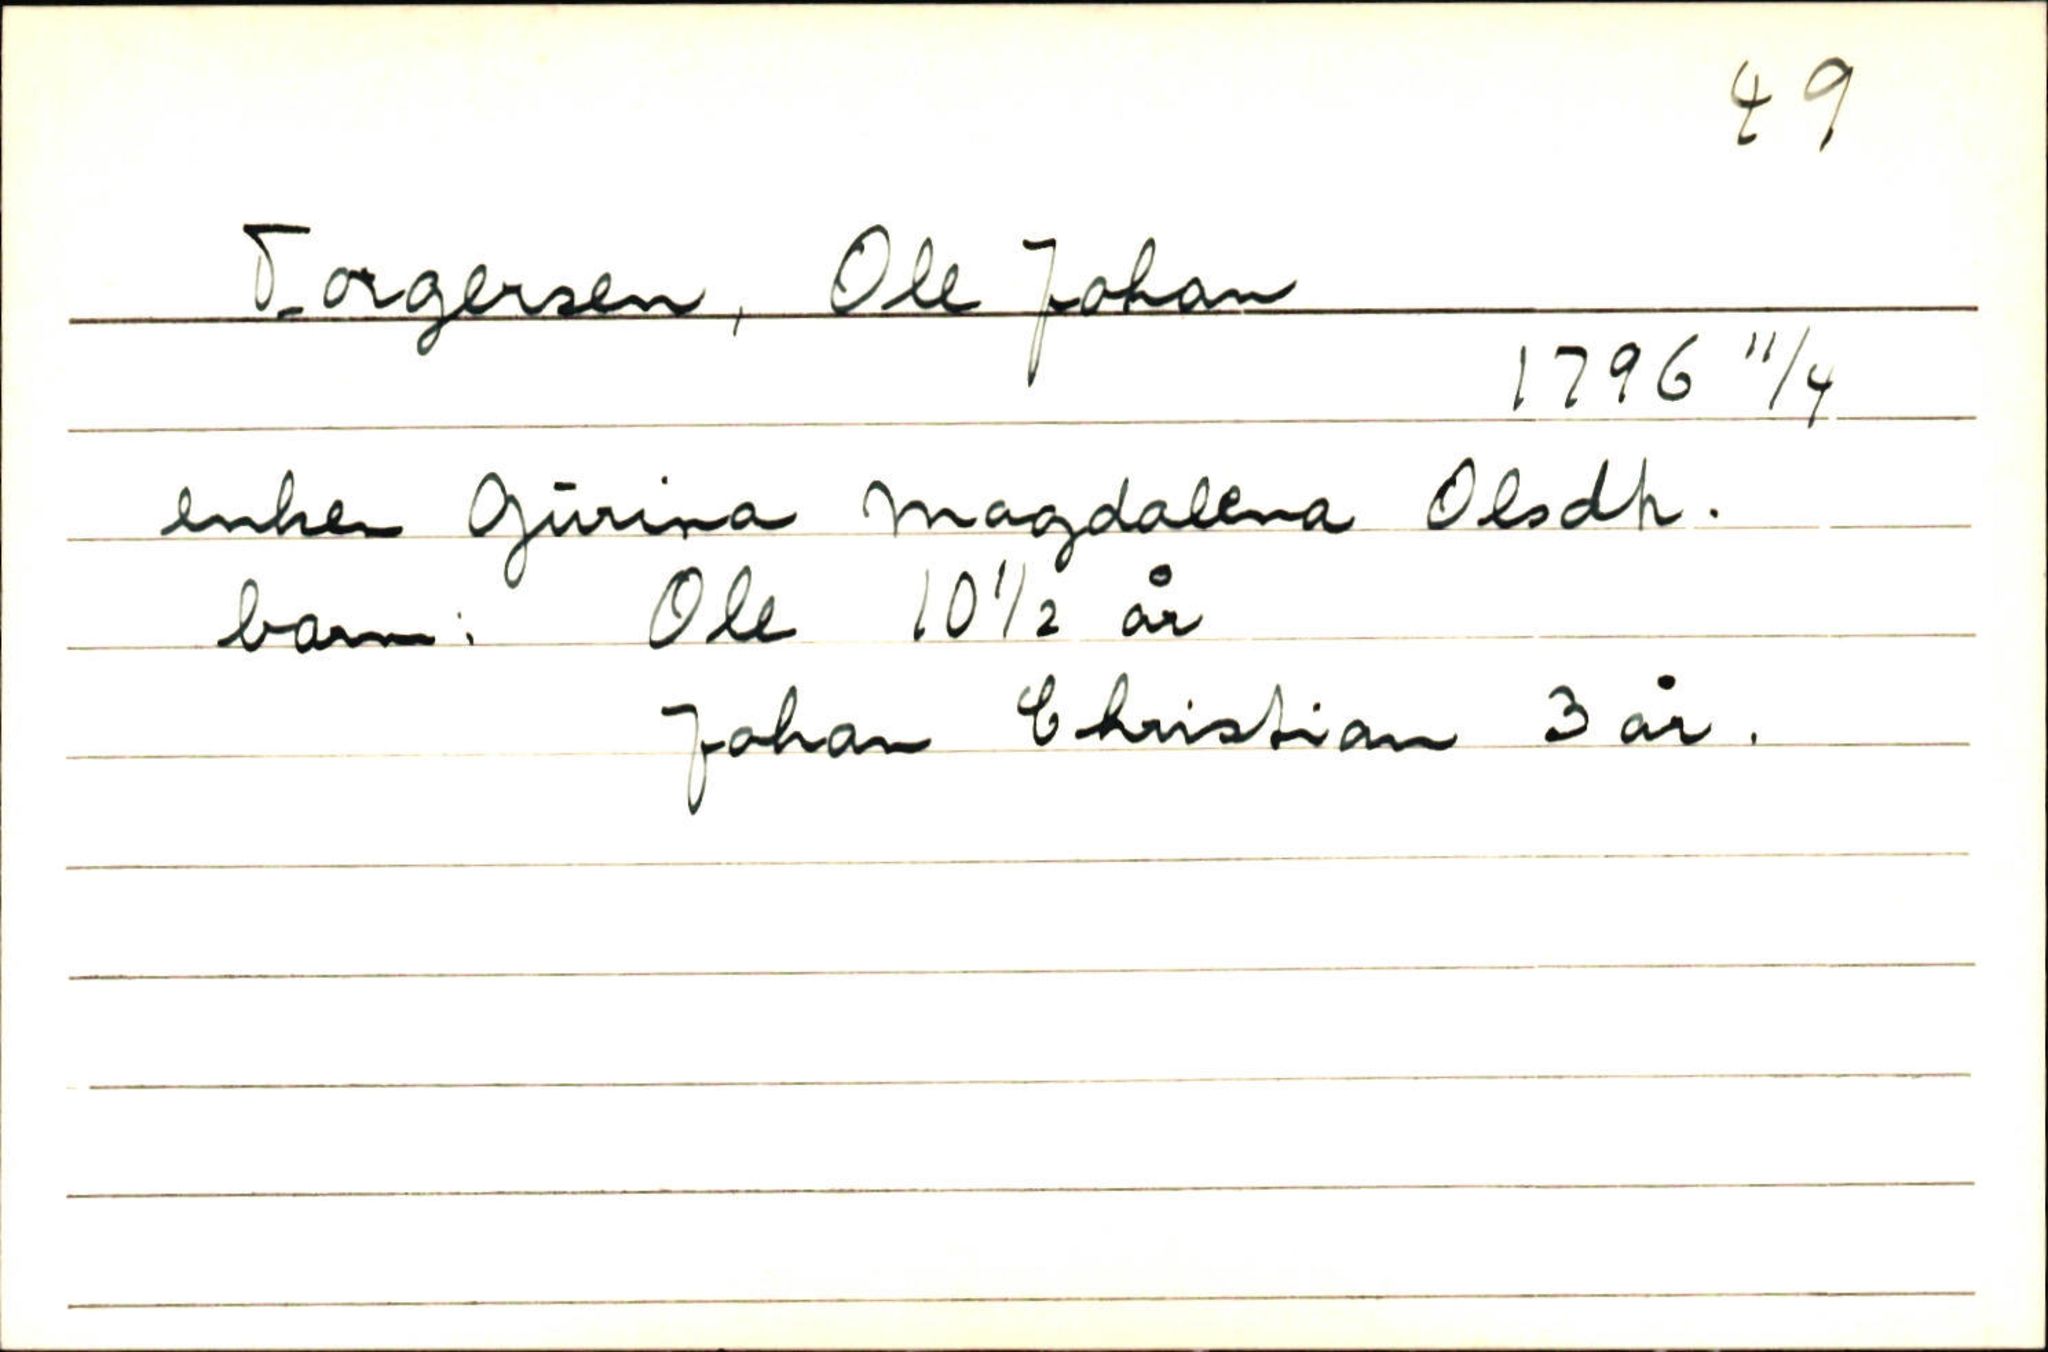 49
Torgersen, Ole Johan
1796 11/4
enken Gurina Magdalena Olsdtr.
barn: Ole 10 1/2 år
Johan Christian 3 år.